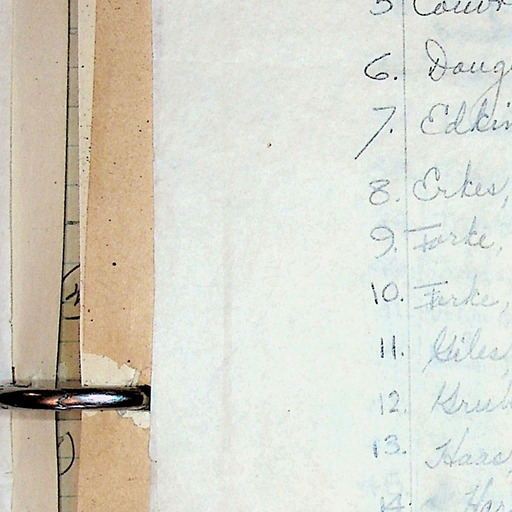 5 Cour
6. Doug
7. Edkin
8. Erkes,
9. Forke,
10. Forke,
11. Giles,
12. Grub
13. Haas,
14. Har